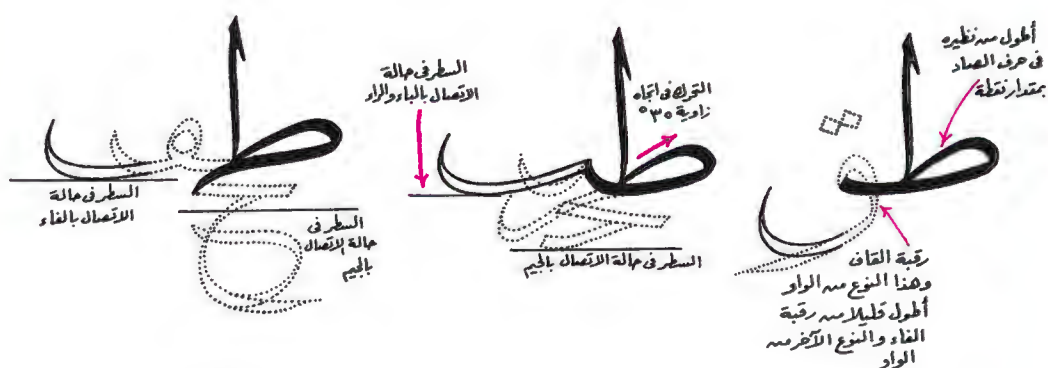 أطول من نظيره
فى حرف الصاد
بمقدار نقطة
رقبة القاف
وهذا النوع من الواو
أطول قليلا من رقبة
الفاء والنوع الآخر من
الواو
السطر فى حالة
الاتصال بالباء والراء
التحرك فى اتجاه
زاوية ٣٥°
السطر فى حالة الاتصال بالجيم
السطر فى حالة
الاتصال بالفاء
السطر فى
حالة الاتصال
بالجيم